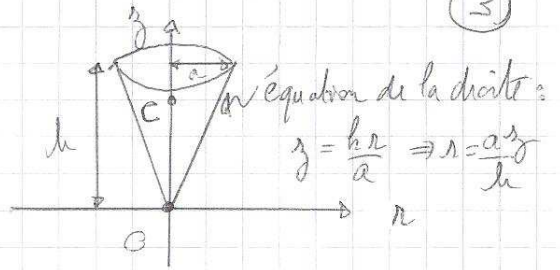 3
z
a
équation de la droite :
C
h
z = hr/a ⇒ r = az/h
r
O